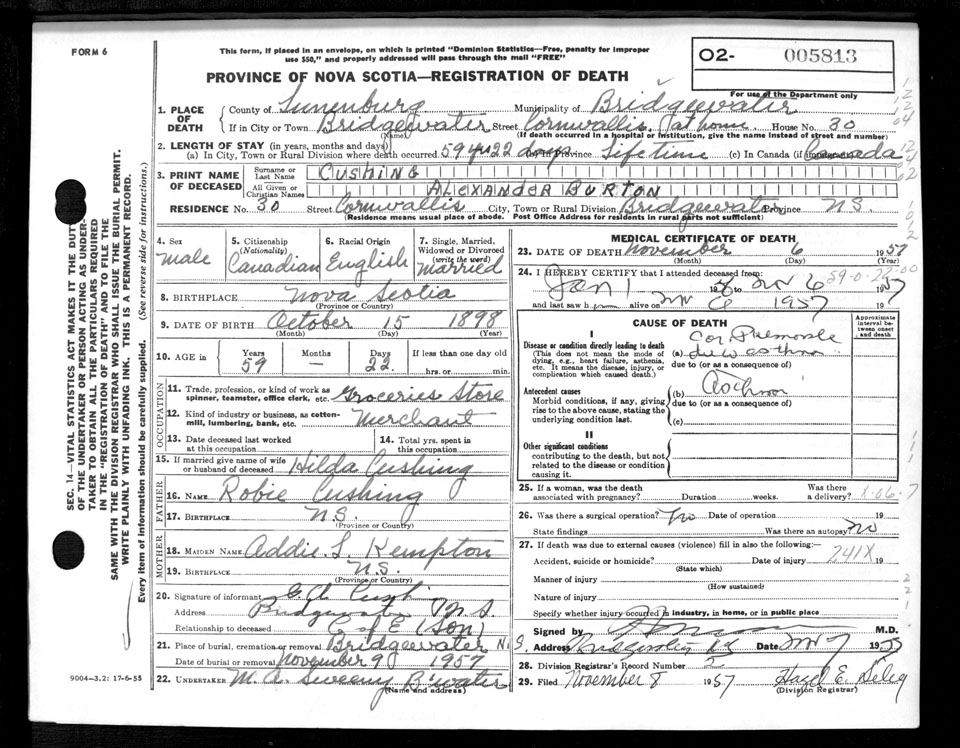 FORM 6
This form, if placed in an envelope, on which is printed "Dominion Statistics—Free, penalty for improper
use $50," and properly addressed will pass through the mail "FREE"
O2- 005813
For use of the Department only
PROVINCE OF NOVA SCOTIA—REGISTRATION OF DEATH
1. PLACE OF DEATH
County of Lunenburg Municipality of Bridgewater
If in City or Town Bridgewater Street Cornwallis (at home) House No. 30
(Name) (If death occurred in a hospital or institution, give the name instead of street and number)
2. LENGTH OF STAY (in years, months and days)
(a) In City, Town or Rural Division where death occurred 59 yrs 22 days Province Lifetime (c) In Canada (if immigrant) Canada
3. PRINT NAME OF DECEASED
Surname or Last Name CUSHING
All Given or Christian Names ALEXANDER BURTON
RESIDENCE No. 30 Street Cornwallis City, Town or Rural Division Bridgewater Province N.S.
(Residence means usual place of abode. Post Office Address for residents in rural parts not sufficient)
4. Sex Male
5. Citizenship (Nationality) Canadian
6. Racial Origin English
7. Single, Married, Widowed or Divorced (write the word) Married
8. BIRTHPLACE Nova Scotia
(Province or Country)
9. DATE OF BIRTH October 15 1898
(Month) (Day) (Year)
10. AGE in Years 59 Months — Days 22 If less than one day old hrs. or min.
OCCUPATION
11. Trade, profession, or kind of work as spinner, teamster, office clerk, etc. Groceries Store
12. Kind of industry or business, as cotton-mill, lumbering, bank, etc. Merchant
13. Date deceased last worked at this occupation
14. Total yrs. spent in this occupation
15. If married give name of wife or husband of deceased Hilda Cushing
FATHER
16. NAME Robie Cushing
17. BIRTHPLACE N.S.
(Province or Country)
MOTHER
18. MAIDEN NAME Addie L. Kempton
19. BIRTHPLACE N.S.
(Province or Country)
20. Signature of informant Cushing
Address Bridgewater N S
Relationship to deceased C of E (Son)
21. Place of burial, cremation or removal Bridgewater N.S.
Date of burial or removal November 9 1957
22. UNDERTAKER M. A. Sweeny B'water
(Name and address)
9004-3.2: 17-6-55
MEDICAL CERTIFICATE OF DEATH
23. DATE OF DEATH November 6 1957
(Month) (Day) (Year)
24. I HEREBY CERTIFY that I attended deceased from:
Jan 1 Nov 6 1957
59-0-22-00
and last saw h alive on Nov 6 1957 19
CAUSE OF DEATH
Approximate interval between onset and death
I
Disease or condition directly leading to death
(This does not mean the mode of dying, e.g., heart failure, asthenia, etc. It means the disease, injury, or complication which caused death.)
(a) Cor Pulmonale
due to (or as a consequence of)
Antecedent causes
Morbid conditions, if any, giving rise to the above cause, stating the underlying condition last.
(b) Asthma
due to (or as a consequence of)
(c)
II
Other significant conditions
contributing to the death, but not related to the disease or condition causing it.
25. If a woman, was the death associated with pregnancy? Duration weeks. Was there a delivery?
26. Was there a surgical operation? No Date of operation 19
State findings Was there an autopsy? no
27. If death was due to external causes (violence) fill in also the following:—
Accident, suicide or homicide? Date of injury 241X 19
(State which)
Manner of injury
(How sustained)
Nature of injury
Specify whether injury occurred in industry, in home, or in public place
Signed by M.D.
Address Bridgewater NS Date Nov 7 1957
28. Division Registrar's Record Number 2
29. Filed November 8 1957 Hazel E.
(Division Registrar)
SEC. 14—VITAL STATISTICS ACT MAKES IT THE DUTY
OF THE UNDERTAKER OR PERSON ACTING AS UNDER-
TAKER TO OBTAIN ALL THE PARTICULARS REQUIRED
IN THE "REGISTRATION OF DEATH" AND TO FILE THE
SAME WITH THE DIVISION REGISTRAR WHO SHALL ISSUE THE BURIAL PERMIT.
WRITE PLAINLY WITH UNFADING INK. THIS IS A PERMANENT RECORD.
Every item of information should be carefully supplied. (See reverse side for instructions.)